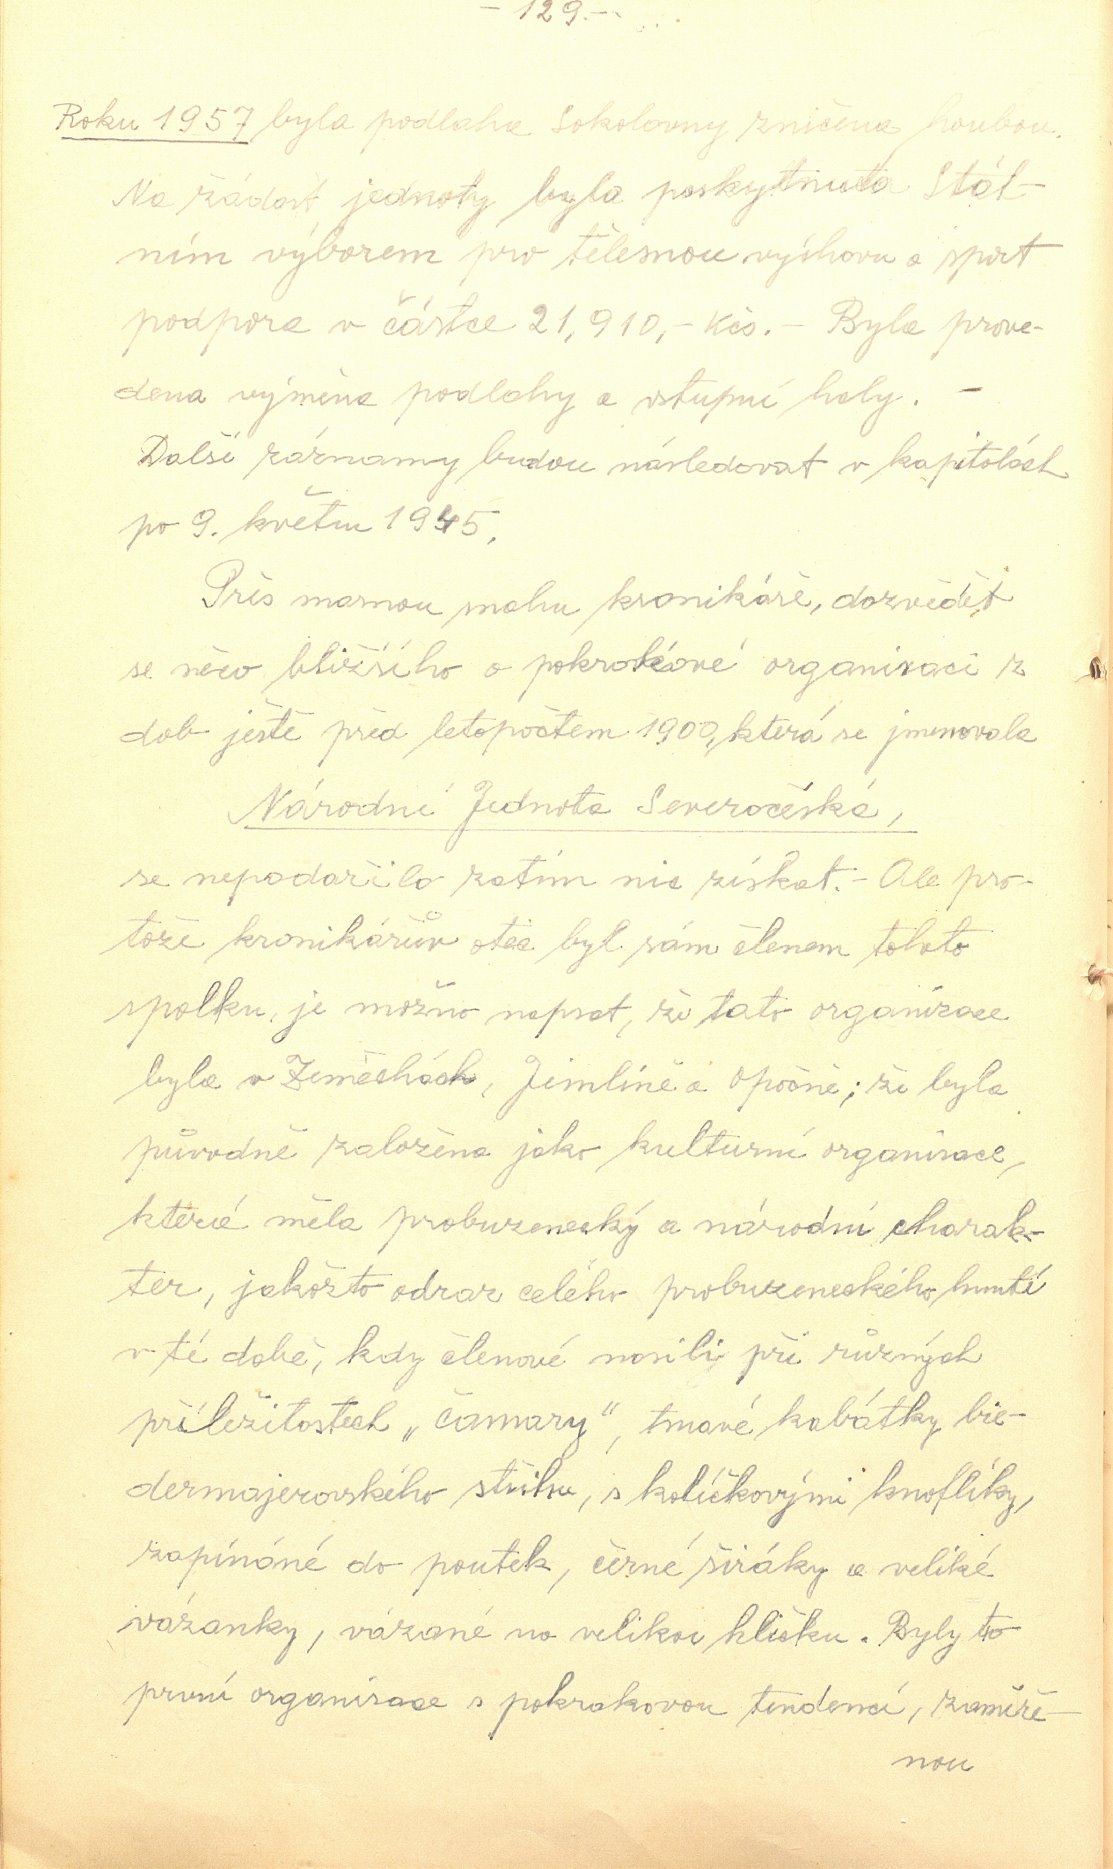 - 129.-
Roku 1957 byla podlaha Sokolovny zničena houbou.
Na žádost jednoty byla poskytnuta Stát-
ním výborem pro tělesnou výchovu a sport
podpora v částce 21,910,- Kčs. - Byla prove-
dena výměna podlahy a vstupní haly. -
Další záznamy budou následovat v kapitolách
po 9. květnu 1945.
Přes marnou snahu kronikáře, dozvědět
se něco bližšího o pokrokové organisaci z
dob ještě před letopočtem 1900, která se jmenovala
Národní Jednota Severočeská,
se nepodařilo zatím nic získat. - Ale pro-
tože kronikářův otec byl sám členem tohoto
spolku, je možno napsat, že tato organizace
byla v Zeměchách, Jimlíně a Opočně; že byla
původně založena jako kulturní organisace,
která měla probuzenecký a národní charak-
ter, jakožto odraz celého probuzeneckého hnutí
v té době, kdy členové nosili při různých
příležitostech „čamary", tmavé kabátky bie-
dermajerovského střihu, s kolíčkovými knoflíky,
zapínáné do poutek, černé širáky a veliké
vázanky, vázané na velikou kličku. Byly to
první organisace s pokrokovou tendencí, zaměře-
nou